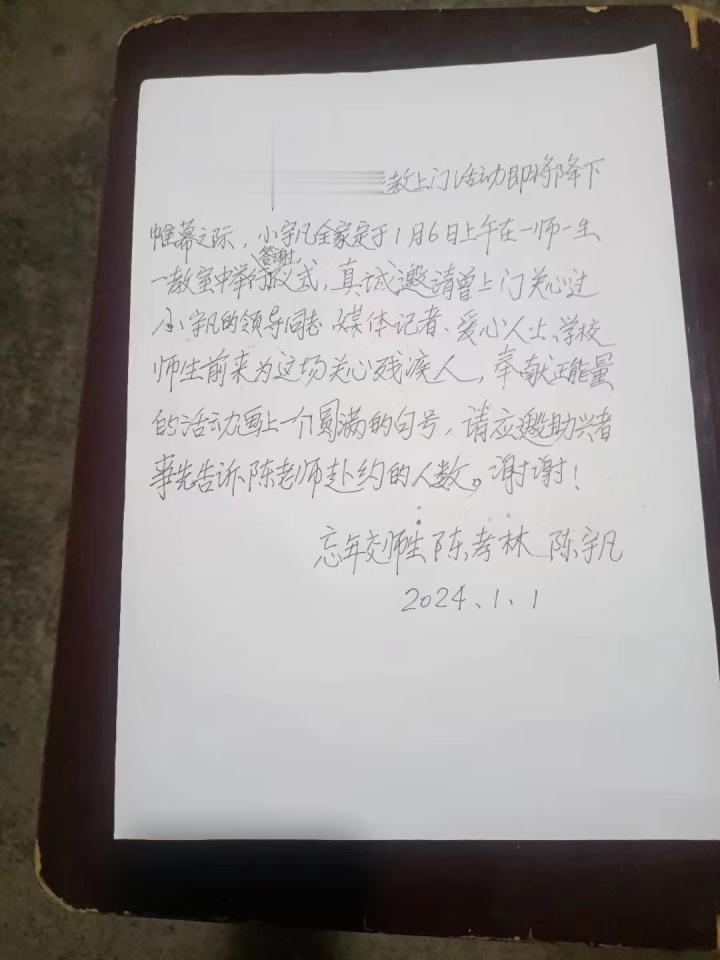 教上门活动即将降下
帷幕之际，小宇凡全家定于1月6日上午在一师一生
答谢
一教室中举行仪式，真诚邀请曾上门关心过
小宇凡的领导同志、媒体记者、爱心人士、学校
师生前来为这场关心残疾人，奉献正能量
的活动画上一个圆满的句号，请应邀助兴者
事先告诉陈老师赴约的人数。谢谢！
忘年交师生 陈孝林 陈宇凡
2024、1、1